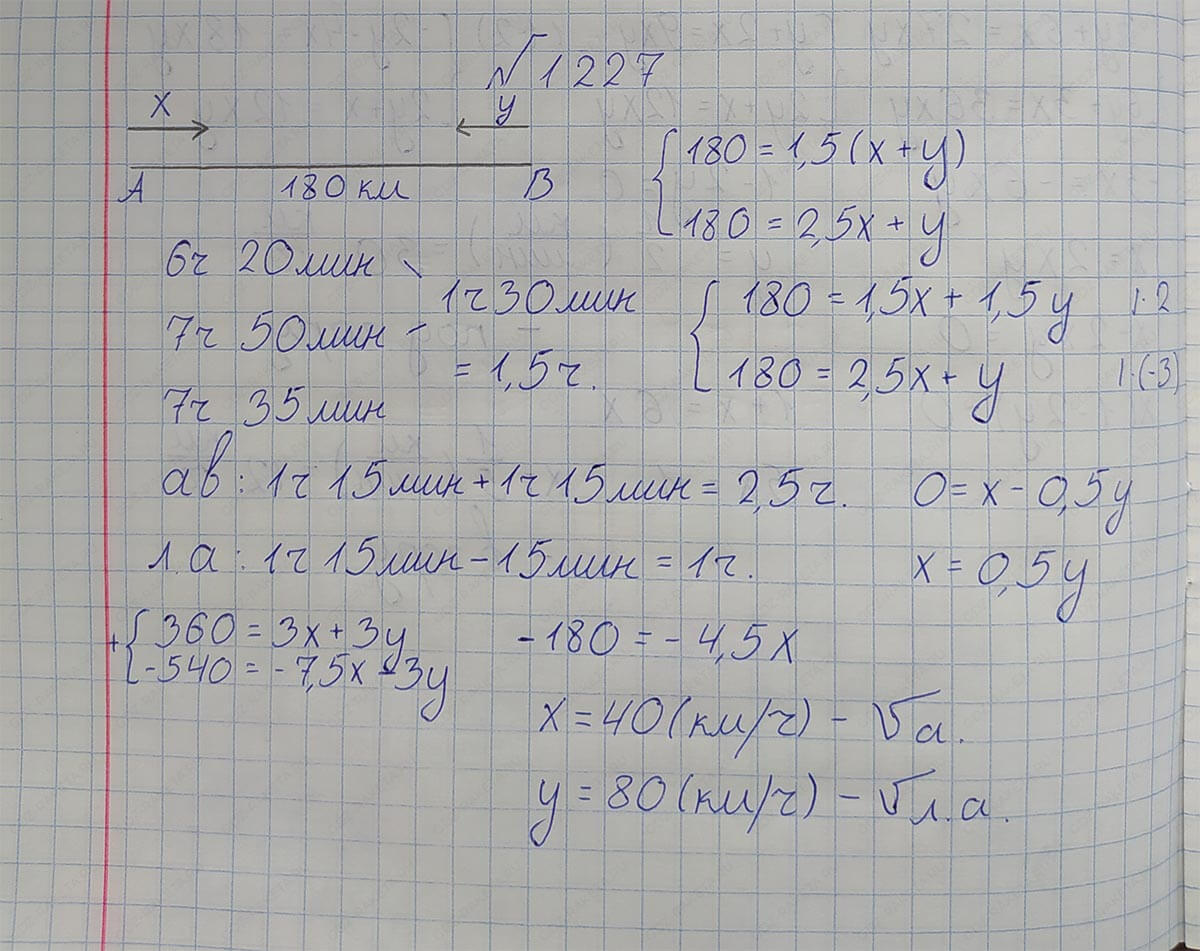 №1227
x
y
A 180 км B
{180 = 1,5(x+y)
180 = 2,5x + y
6ч 20мин
7ч 50мин
1ч 30мин
= 1,5ч.
7ч 35мин
{180 = 1,5x + 1,5y |·2
180 = 2,5x + y |·(-3)
ав: 1ч 15мин + 1ч 15мин = 2,5ч.
0 = x - 0,5y
л.а: 1ч 15мин - 15мин = 1ч.
x = 0,5y
+{360 = 3x + 3y
-540 = -7,5x - 3y
-180 = -4,5x
x = 40(км/ч) - Vа.
y = 80(км/ч) - Vл.а.